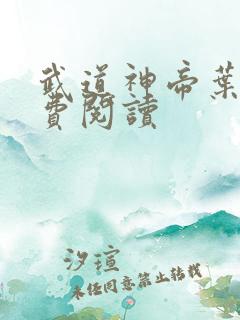 武道神帝葉
費閱讀
汐瑄
未经同意禁止转载